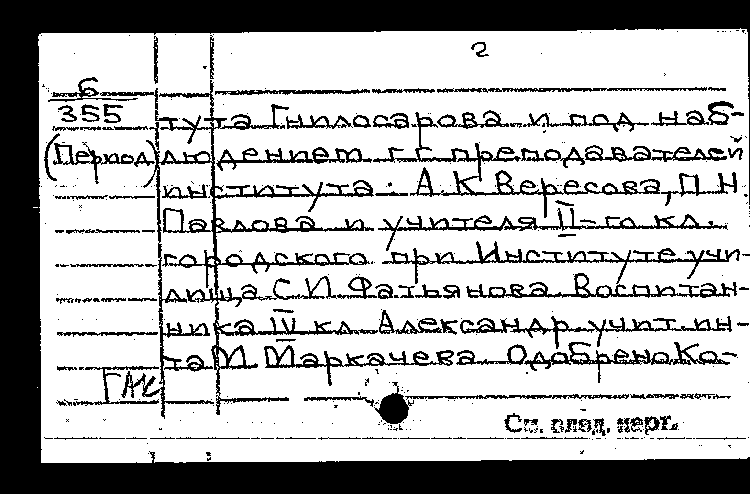 2
6
355
(Период)
тута Гнилосарова и под наб-
людением г.г. преподавателей
института: А.К Вересова, П.Н.
Павлова и учителя II-го кл.
городского при Институте учи-
лища С И Фатьянова Воспитан-
ника IV кл Александр. учит. ин-
та М. Маркачева Одобрено Ко-
ГАК
См. след. карт.